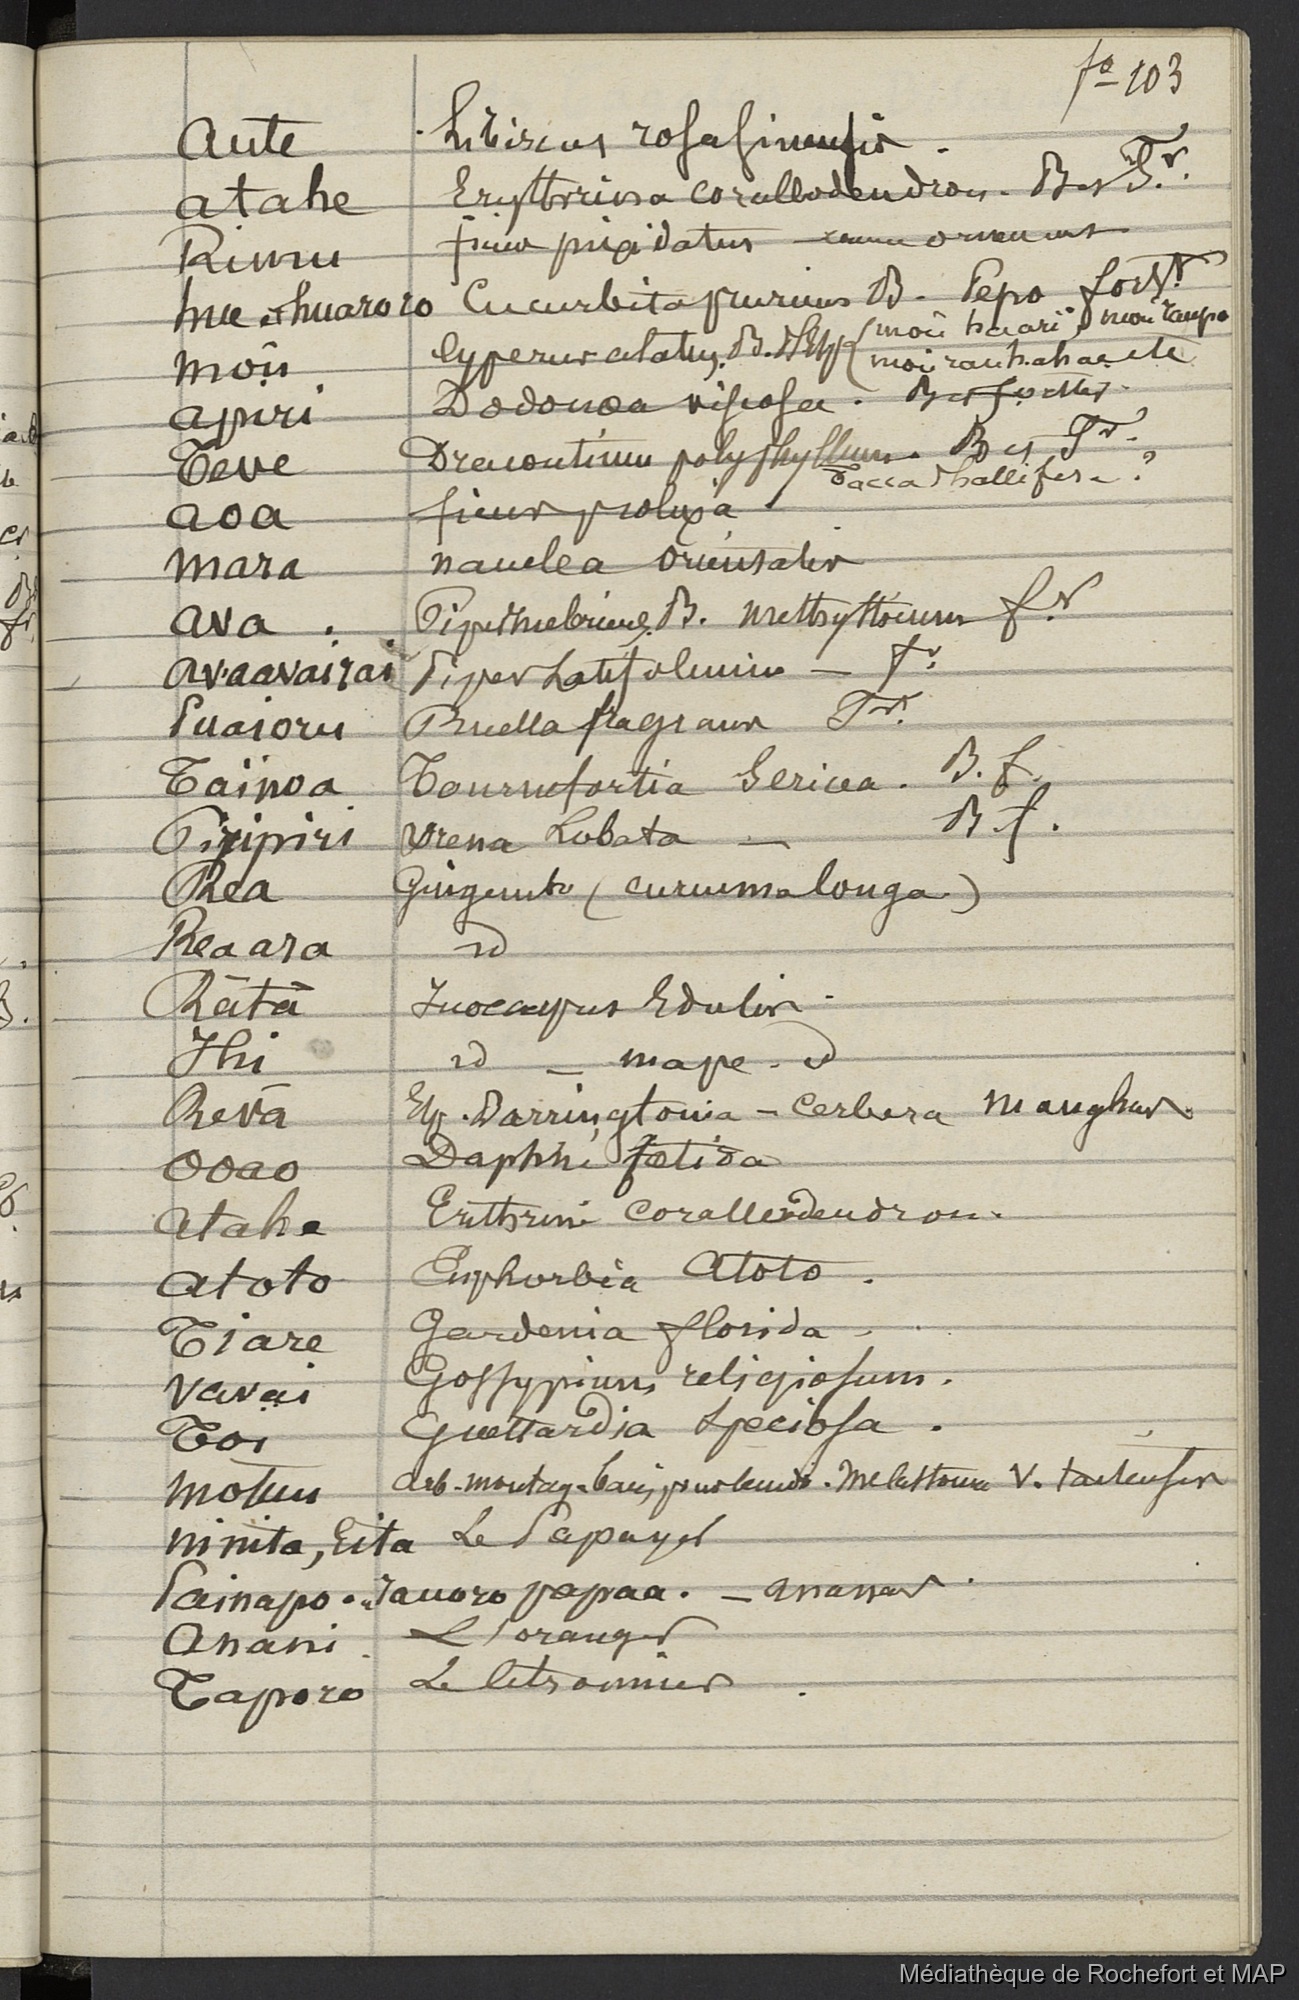 fo 103
aute . hibiscus rosasinensis .
atahe Erythrina corallodendron . B et Fr.
Rimu
hue et huaroro Cucurbita pruriens B - Pepo forstr
moū Cyperus alatus, B. (moū haari, moū raupo
moū rauhahae etc
apiri Dodonœa viscosa . B et forster
Teve Dracontium polyphyllum . B et Fr.
Tacca Phallifera ?
aoa ficus prolixa
mara nauclea orientalis
ava . Piper B. methysticum fr
avaavairai Piper Latifolium — fr.
Puaioru Ruella fragrans Fr.
Taïnoa Tournefortia Sericea . B. f.
Piripiri Urena Lobata — B f.
Rea Gingembre (curcuma longa)
Rea ara id
Rātā Inocarpus Edulis -
Ihi id — mape . id
Revā Esp. Barringtonia - Cerbera Manghas
Ooao Daphné fœtida
atahe Erithrine Corallodendron .
atoto Euphorbia atoto .
Tiare Gardenia florida .
vavai Gossypium religiosum .
Toi Guettardia Speciosa .
motuu arb. montag. . Melastoma V. taitensis
ninita, Eita Le Papayer
Painapo . rauoro papaa . — ananas .
Anani L'oranger
Taporo Le Citronnier .
Médiathèque de Rochefort et MAP